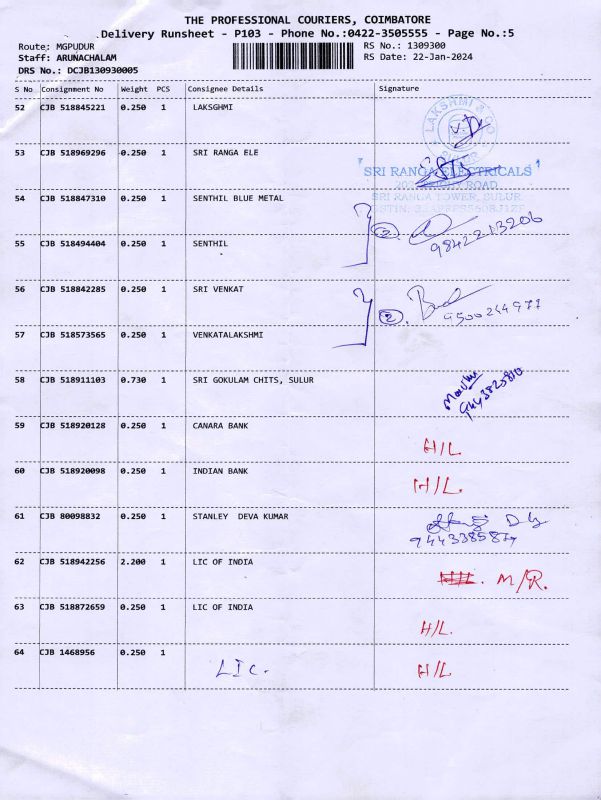 THE PROFESSIONAL COURIERS, COIMBATORE
Delivery Runsheet - P103 - Phone No.:0422-3505555 - Page No.:5
Route: MGPUDUR
RS No.: 1309300
Staff: ARUNACHALAM
RS Date: 22-Jan-2024
DRS No.: DCJB130930005
S No Consignment No Weight PCS Consignee Details Signature
52 CJB 518845221 0.250 1 LAKSGHMI
LAKSHMI & CO
53 CJB 518969296 0.250 1 SRI RANGA ELE
SRI RANGA ELECTRICALS
ROAD
SRI RANGA TOWER, SULUR
54 CJB 518847310 0.250 1 SENTHIL BLUE METAL
2
9842213206
55 CJB 518494404 0.250 1 SENTHIL
56 CJB 518842285 0.250 1 SRI VENKAT
2
9500244977
57 CJB 518573565 0.250 1 VENKATALAKSHMI
58 CJB 518911103 0.730 1 SRI GOKULAM CHITS, SULUR
59 CJB 518920128 0.250 1 CANARA BANK
H/L
60 CJB 518920098 0.250 1 INDIAN BANK
H/L.
61 CJB 80098832 0.250 1 STANLEY DEVA KUMAR
62 CJB 518942256 2.200 1 LIC OF INDIA
M/R.
63 CJB 518872659 0.250 1 LIC OF INDIA
H/L.
64 CJB 1468956 0.250 1
LIC. H/L